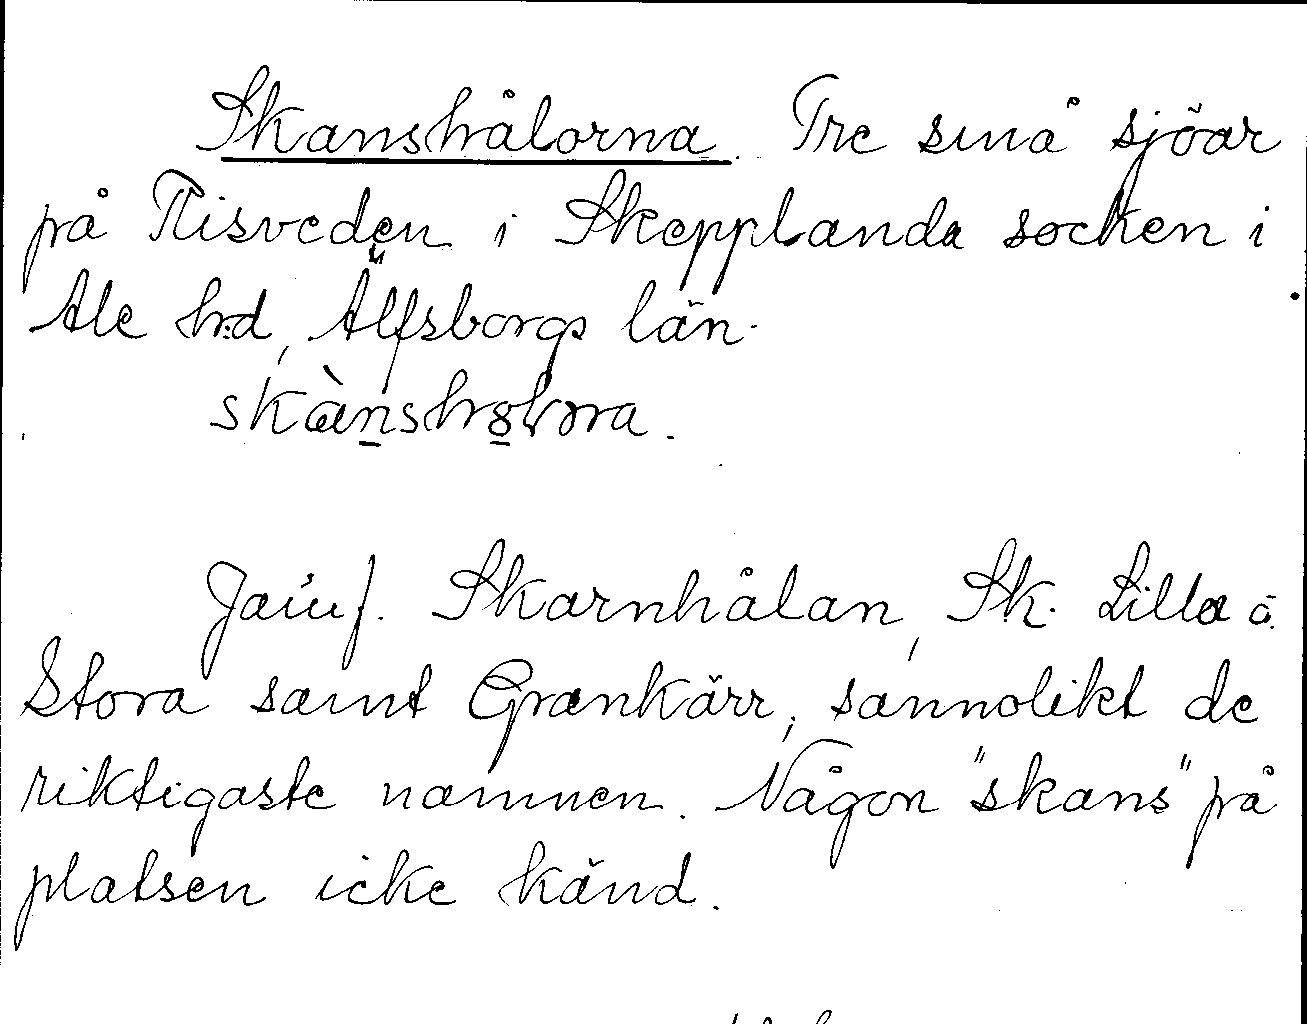 Skanshålorna. Tre små sjöar
på Risveden i Skepplanda socken i
Ale hd, Älfsborgs län.
Jämf. Skarnhålan, Sk. Lilla o.
Stora samt Grankärr, sannolikt de
riktigaste namnen. Någon "skans" på
platsen icke känd.